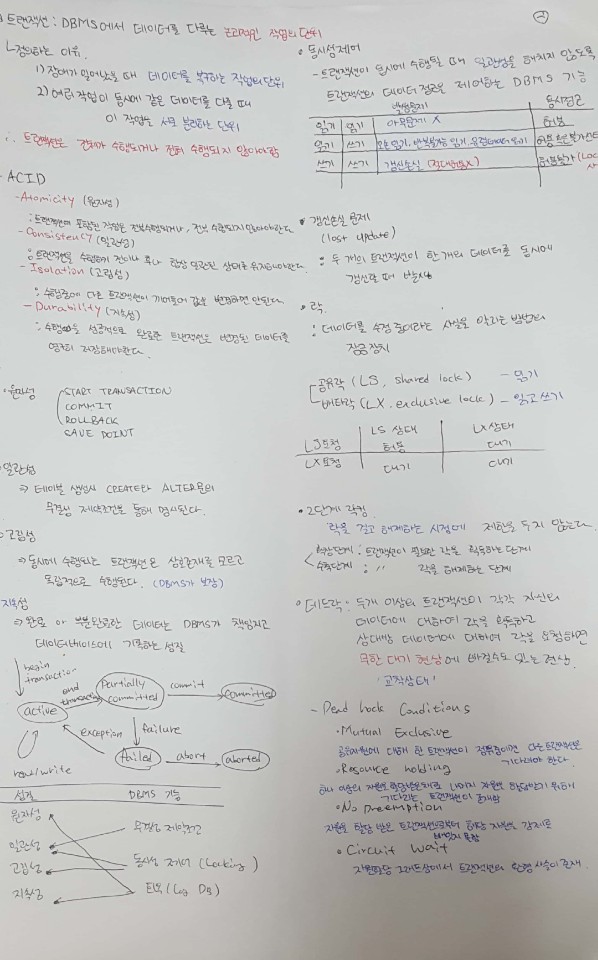 트랜잭션 : DBMS에서 데이터를 다루는 논리적인 작업의 단위
정의하는 이유.
1) 장애가 일어났을 때 데이터를 복구하는 작업의 단위
2) 여러 작업이 동시에 같은 데이터를 다룰 때
이 작업을 서로 분리하는 단위
∴ 트랜잭션은 전체가 수행되거나 전혀 수행되지 않아야함
- ACID
- Atomicity (원자성)
: 트랜잭션에 포함된 작업은 전부 수행되거나, 전부 수행되지 않아야한다.
- Consistency (일관성)
: 트랜잭션을 수행하기 전이나 후나 항상 일관된 상태를 유지해야한다.
- Isolation (고립성)
: 수행중에 다른 트랜잭션이 끼어들어 값을 변경하면 안된다.
- Durability (지속성)
: 수행을 성공적으로 완료한 트랜잭션은 변경된 데이터를
영구히 저장해야한다.
· 원자성
START TRANSACTION
COMMIT
ROLLBACK
SAVE POINT
일관성
⇒ 테이블 생성시 CREATE와 ALTER문의
무결성 제약조건을 통해 명시된다.
고립성
⇒ 동시에 수행되는 트랜잭션은 상호존재를 모르고
독립적으로 수행된다. (DBMS가 보장)
지속성
⇒ 완료 or 부분완료한 데이터는 DBMS가 책임지고
데이터베이스에 기록하는 성질
begin
transaction
end
transaction
partially
committed
commit
committed
active
exception
failure
failed
abort
aborted
read/write
성질 DBMS 기능
원자성
무결성 제약조건
일관성
고립성
동시성 제어 (Locking)
지속성
회복 (Log DB)
②
• 동시성제어
- 트랜잭션이 동시에 수행될 때 일관성을 해치지 않도록
트랜잭션의 데이터 접근을 제어하는 DBMS 기능
발생문제 동시접근
읽기 읽기 아무문제 X 허용
읽기 쓰기 오손 읽기, 반복불가능 읽기, 유령데이터 읽기
쓰기 쓰기 갱신손실 (절대허용X)
• 갱신손실 문제
(lost update)
: 두 개의 트랜잭션이 한 개의 데이터를 동시에
갱신할 때 발생
• 락.
: 데이터를 수정 중이라는 사실을 알리는 방법의
잠금장치
공유락 (LS, shared lock) - 읽기
배타락 (LX, exclusive lock) - 읽고쓰기
LS 상태 LX 상태
LS요청 허용 대기
LX요청 대기 대기
• 2단계 락킹
락을 걸고 해제하는 시점에 제한을 두지 않는다.
확장단계 : 트랜잭션이 필요한 락을 획득하는 단계
수축단계 : 〃 락을 해제하는 단계
• 데드락 : 두개 이상의 트랜잭션이 각각 자신의
데이터에 대하여 락을 획득하고
상대방 데이터에 대하여 락을 요청하면
무한 대기 현상에 빠질수도 있는 현상.
'교착상태'
- Dead lock Conditions
• Mutual Exclusive
공유자원에 대해 한 트랜잭션이 점유중이면 다른트랜잭션은
기다려야 한다.
• Resource holding
하나 이상의 자원을 할당받은채로 나머지 자원을 할당받기 위해
기다리는 트랜잭션이 존재함
• No Preemption
자원을 할당 받은 트랜잭션으로부터 해당 자원을 강제로
빼앗지 못함
• Circuit Wait
자원할당 그래프상에서 트랜잭션의 환형 사슬이 존재.